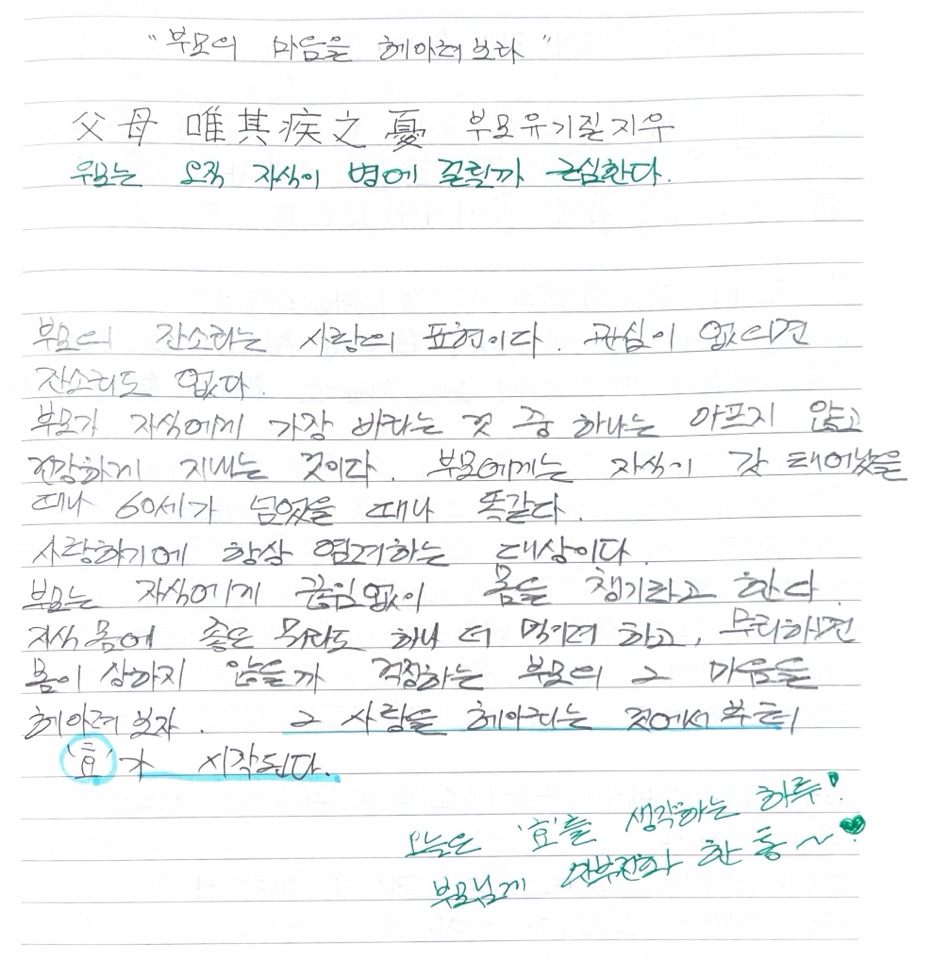 "부모의 마음을 헤아려보라"
父母 唯其疾之憂 부모유기질지우
부모는 오직 자식이 병에 걸릴까 근심한다.
부모의 잔소리는 사랑의 표현이다. 관심이 없으면
잔소리도 없다.
부모가 자식에게 가장 바라는 것 중 하나는 아프지 않고
건강하게 지내는 것이다. 부모에게는 자식이 갓 태어났을
때나 60세가 넘었을 때나 똑같다.
사랑하기에 항상 염려하는 대상이다.
부모는 자식에게 끊임없이 몸을 챙기라고 한다.
자식 몸에 좋은 뭐라도 하나 더 먹이려 하고, 무리하면
몸이 상하지 않을까 걱정하는 부모의 그 마음을
헤아려 보자. 그 사랑을 헤아리는 것에서부터
'효'가 시작된다.
오늘은 '효'를 생각하는 하루!
부모님께 안부전화 한 통~♥